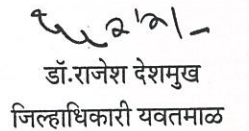 डॉ.राजेश देशमुख
जिल्हाधिकारी यवतमाळ